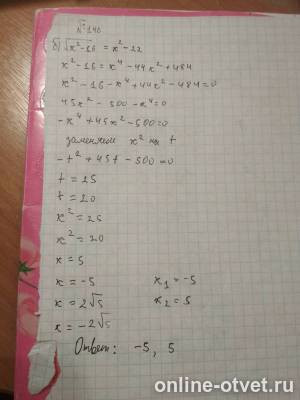 №140
б) √x²-16 = x²-22
x²-16 = x⁴-44x²+484
x²-16-x⁴+44x²-484=0
45x²-500-x⁴=0
-x⁴+45x²-500=0
заменяем x² на t
-t²+45t-500=0
t = 25
t = 20
x² = 25
x² = 20
x = 5
x = -5 x₁ = -5
x = 2√5 x₂ = 5
x = -2√5
Ответ: -5, 5
online-otvet.ru